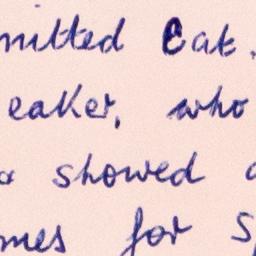 mitted Cat.
eaker, who
showed
mes for S